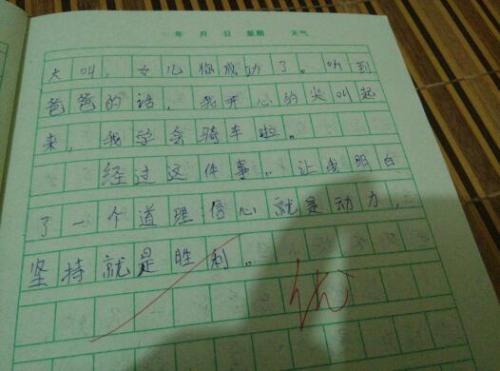 年 月 日 星期 天气
大叫，女儿你成功了。听到
爸爸的话，我开心的尖叫起
来，我学会骑车啦。
经过这件事。让我明白
了一个道理信心就是动力，
坚持就是胜利。
优